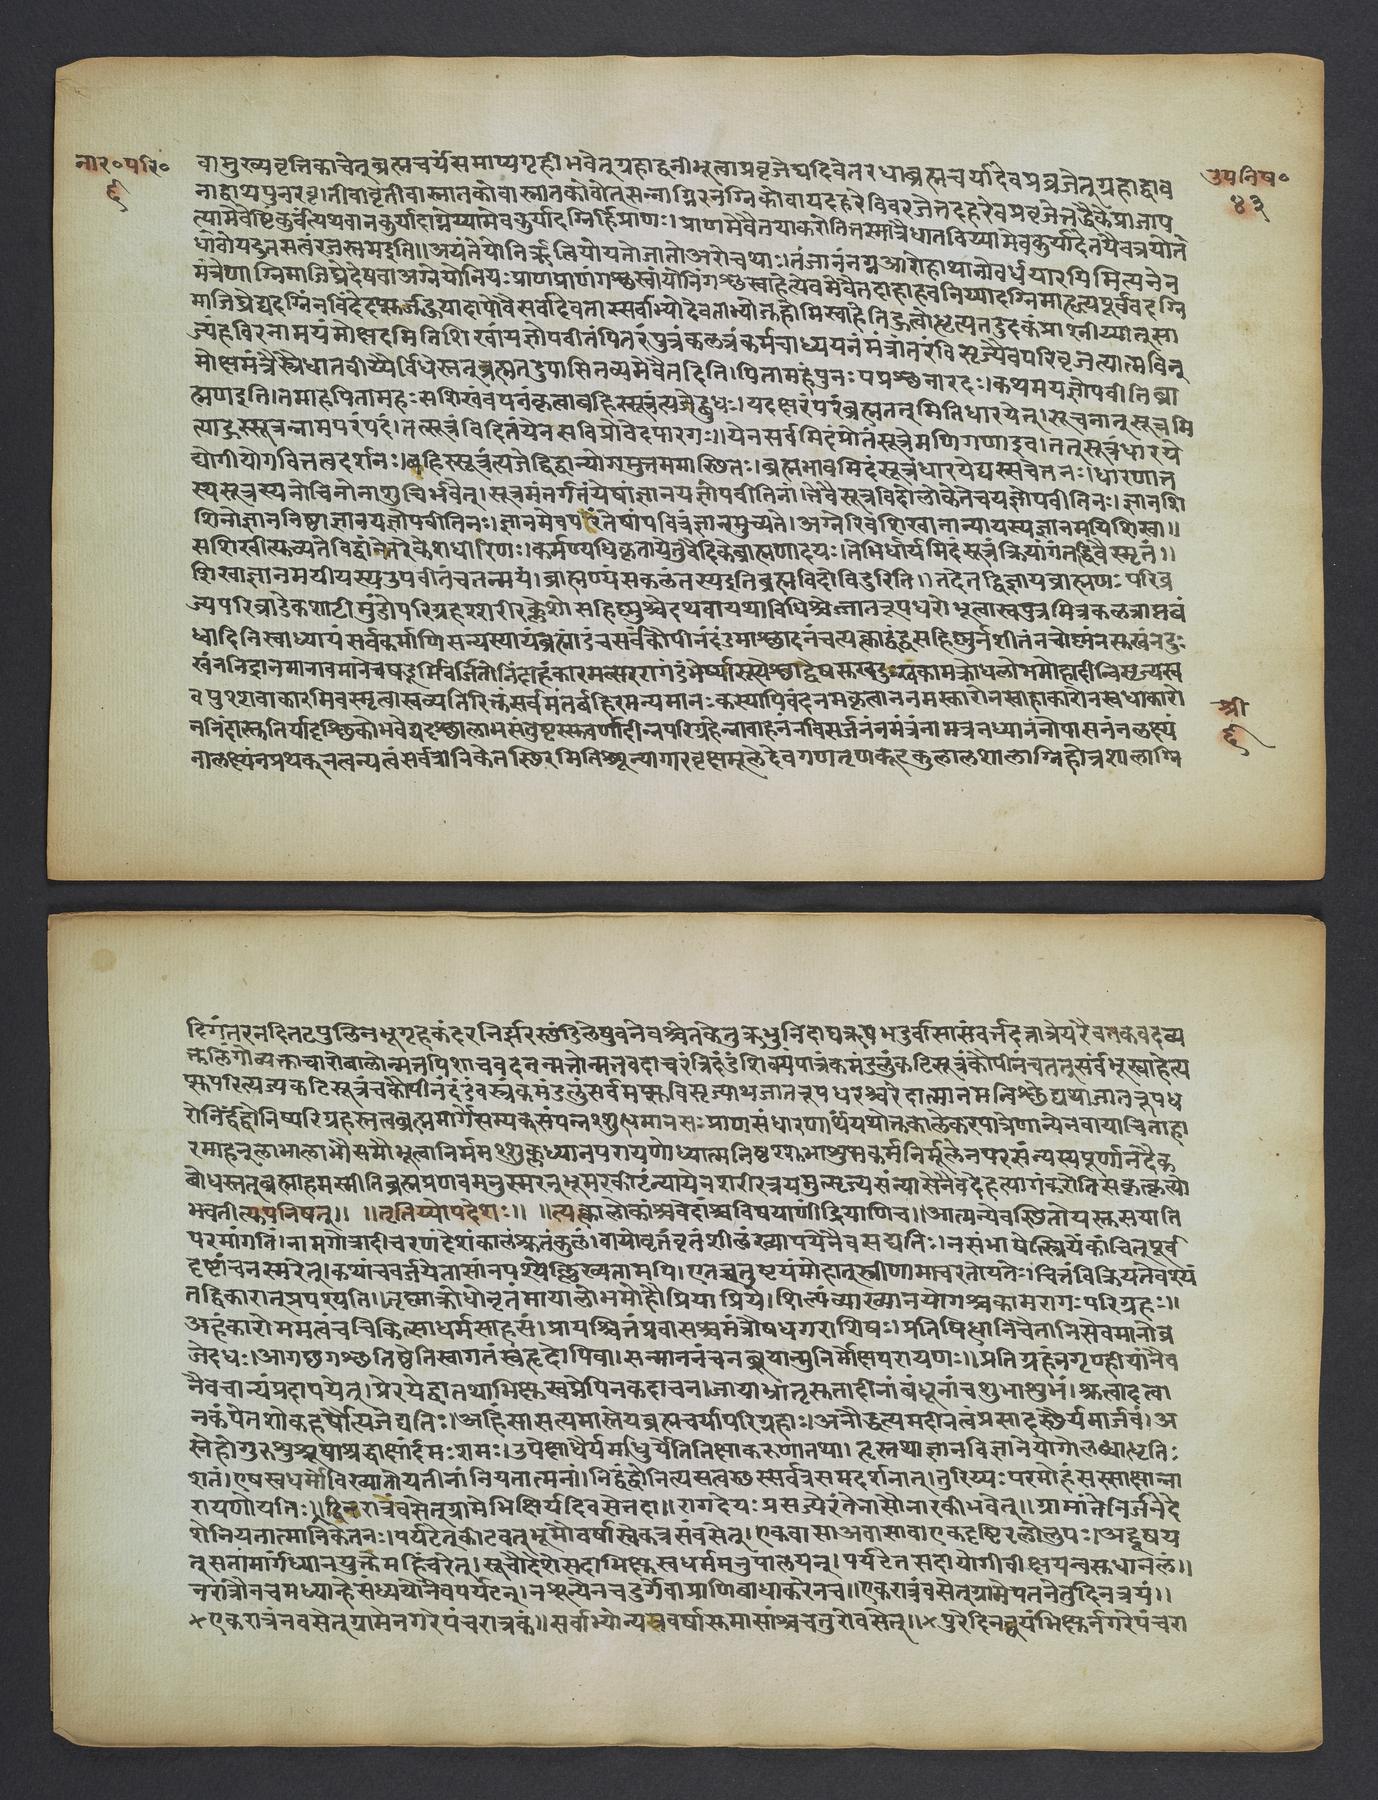 नार॰परि॰
६
उपनिष॰
४३
वामुख्यवृत्तिकाचेत्‌ब्रह्मचर्यंसमाप्यगृहीभवेत्‌ग्रहाद्वनीभूत्वाप्रवृजेद्यदिवेतरथाब्रह्मचर्यादेवप्रव्रजेत्‌ग्रहाद्वाव
नाद्वाथपुनरवृतीवावृतीवास्नातकोवास्नातकोवोत्सन्नाग्निरनग्निकोवायदहरेवविरजेत्तदहरेवप्रवृजेत्तद्धैकेप्राजाप
त्यामेवेष्टिंकुर्वंत्यथवानकुर्यादाग्नेय्यामेवकुर्यादग्निर्हिप्राणः।प्राणमेवैतयाकरोतितस्मात्रैधातविय्यामेवकुर्यादेतयैवत्रयोत
धावोयदुतसत्वंरजस्तमइति॥अयंतेयोनिर्ऋत्वियोयतोजातोअरोचथाः।तंजानंनग्नआरोहाथानोवर्धयारयिमित्यनेन
मंत्रेणाग्निमाजिघ्रेदेषवाअग्नेर्योनिर्यःप्राणःप्राणंगच्छस्वांयोनिंगच्छस्वाहेत्येवमेवैतदाहाहवनिय्यादग्निमाहृत्यपूर्ववदग्नि
माजिघ्रेद्यदग्निंनविंदेदप्सुर्जुहुयादापोवैसर्वादेवतास्सर्वाभ्योदेवताभ्योजुहोमिस्वाहेतिहुत्वोधृत्यतदुदकंप्राश्नीय्यात्‌सा
ज्यंहविरनामयंमोक्षदमितिशिखांयज्ञोपवीतंपितरंपुत्रंकलत्रंकर्मचाध्ययनंमंत्रांतरंविसृज्यैवपरिवृजत्यात्मविन्‌
मोक्षमंत्रैस्त्रैधातवीय्यैर्विधेस्तत्‌ब्रह्मतदुपासितव्यमेवैतदिति।पितामहंपुनःपप्रच्छनारदः।कथमयज्ञोपवीतिब्रा
ह्मणइति।तमाहपितामहःसशिखंवपनंकृत्वाबहिस्सूत्रंत्यजेद्बुधः।यदक्षरंपरंब्रह्मतत्सूत्रमितिधारयेत्‌।सूचनात्सूत्रमि
त्याहुस्सूत्रन्नामपरंपदं।तत्सूत्रंविदितंयेनसविप्रोवेदपारगः॥येनसर्वमिदंप्रोतंसूत्रेमणिगणाइव।तत्सूत्रंधारये
द्योगीयोगवित्तत्वदर्शनः।बहिस्सूत्रंत्यजेद्विद्वान्योगमुत्तममास्थितः।ब्रह्मभावमिदंसूत्रंधारयेद्यस्सचेतनः।धारणात्त
स्यसूत्रस्यनोछिनोनाशुचिर्भवेत्‌।सूत्रमंतर्गतंयेषांज्ञानयज्ञोपवीतिनां।तेवैसूत्रविदोलोकेतेचयज्ञोपवीतिनः।ज्ञानशि
शिनोज्ञाननिष्ठाज्ञानयज्ञोपवीतिनः।ज्ञानमेवपरंतेषांपवित्रंज्ञानमुच्यते।अग्नेरिवशिखानान्यायस्यज्ञानमयिशिखा॥
सशिखीत्युच्यतेविद्वांनेतरेकेशधारिणः।कर्मण्यधिकृतायेतुवैदिकेब्राह्मणादयः।तेभिर्धार्यमिदंसूत्रंक्रियांगंतद्धिवैस्मृतं॥
शिखाज्ञानमयीयस्यउपवीतंचतन्मयं।ब्राह्मण्यंसकलंतस्यइतिब्रह्मविदोविदुरिति॥तदेतद्विज्ञायब्राह्मणःपरिव्र
ज्यपरिव्राडेकशाटीमुंडोपरिग्रहश्शरीरक्लेशोसहिष्णुश्चेदथवायथाविधिश्चेज्जातरूपधरोभूत्वास्वपुत्रमित्रकलत्राप्तबं
ध्वादिनिस्वाध्यायंसर्वकर्माणिसन्यस्यायंब्रह्मांडंचसर्वंकौपीनंदंडमाच्छादनंचत्यक्त्वाद्वंद्वसहिष्णुर्नशीतंनचोष्णंनसुखंनदुः
खंननिद्रानमानावमानेचषडूर्मिवर्जितोनिंदाहंकारमत्सररागडंभेर्ष्यासूयेच्छाद्वेषसुखदुःखकामक्रोधलोभमोहादीन्विसृज्यस्व
वपुश्शवाकारमिवस्मृत्वास्वव्यतिरिक्तंसर्वमंतर्बहिरमन्यमानःकस्यापिवंदनमकृत्वाननमस्कारोनस्वाहाकारोनस्वधाकारो
ननिंदास्तुतिर्यादृच्छिकोभवेद्यदृच्छालाभसंतुष्टस्सुवर्णादीन्नपरिग्रहेन्नावाहनंनविसर्जनंनमंत्रंनामत्रनध्यानंनोपासनंनलक्ष्यं
नालक्ष्यंनप्रथक्‌नत्वन्यत्वंसर्वत्रानिकेतस्थिरमितिश्शून्यागारवृक्षमूलेदेवगणतृणकूटकुलालशालाग्निहोत्रशालाग्नि
श्री
६
दिगंतरनदितटपुलिनभूगृहकंदरनिर्झरस्थंडिलेषुवनेवश्वेतकेतुऋभुनिदाघऋषभदुर्वासासंवर्त्तदत्तात्रेयरैवतकवदव्य
क्तलिंगोव्यक्ताचारोबालोन्मत्तपिशाचवदनन्मत्तोन्मत्तवदाचरंत्रिदंडंशिक्यंपात्रंकमंडलुंकटिसूत्रंकौपीनंचतत्सर्वंभूस्वाहेत्य
प्सुपरित्यज्यकटिसूत्रंचकौपीनंदंडंवस्त्रंकमंडलुंसर्वमप्सुविसृज्याथजातरूपधरश्चरेदात्मानमन्विच्छेद्यथाजातरूपध
रोनिर्द्वंद्वोनिष्परिग्रहस्तत्वब्रह्ममार्गेसम्यक्‌संपन्नश्शुद्धमानसःप्राणसंधारणार्थंयथोक्तकालेकरपात्रेणान्येनवायाचिताहा
रमाहन्‌लाभालाभौसमौभूत्वानिर्ममश्शुक्लध्यानपरायणोध्यात्मनिष्ठश्शुभाशुभकर्मनिर्मूलेनपरसंन्यस्यपूर्णानंदैक
बोधस्तत्‌ब्रह्माहमस्मीतिब्रह्मप्रणवमनुस्मरन्‌भ्रमरकीटंन्यायेनशरीरत्रयमुत्सृज्यसंन्यासेनैवदेहत्यागंकरोतिसकृत्कृत्यो
भवतीत्युपनिषत्‌॥ ॥तृतिय्योपदेशः॥ ॥त्यक्त्वालोकांश्चवेदांश्चविषयाणींद्रियाणिच॥आत्मन्येवस्थितोयस्तुसयाति
परमांगतिं।नामगोत्रादीचरणंदेशंकालंश्रुतंकुलं।वयोवृत्तंवृतंशीलंख्यापयेंनैवसद्यतिः।नसंभाषेत्स्त्रियंकांचित्‌पूर्व
दृष्टांचनस्मरेत्‌।कथांचवर्जयेत्तासांनपश्येल्लिख्यतामपि।एतच्चतुष्टयंमोहात्‌स्त्रीणामाचरतोयतेः।चित्तंविक्रियतेवश्यं
तद्विकारात्‌प्रपश्यति।तृष्णाक्रोधोनृतंमायालोभमोहौप्रियाप्रिये।शिल्पंव्याख्यानयोगश्चकामरागःपरिग्रहः॥
अहंकारोममत्वंचचिकित्साधर्मसाहसं।प्रायश्चित्तंप्रवासश्चमंत्रौषधगराशिषः।प्रतिषिद्धानिचैतानिसेवमानोव्र
जेदधः।आगच्छगच्छतिष्ठेतिस्वागतंस्वहृदोपिवा।सन्माननंचनब्रूयान्मुनिर्मोक्षपरायणः॥प्रतिग्रहंनगृण्हीयान्नैव
नैवचान्यंप्रदापयेत्‌।प्रेरयेद्वातथाभिक्षुस्वप्नेपिनकदाचन।जायाभ्रातृसुतादीनांबंधूनांचशुभाशुभं।श्रुत्वादृत्वा
नकंपेतशोकहर्षैत्यजेद्यतिः।अहिंसासत्यमस्तेयब्रह्मचर्यापरिग्रहाः।अनौद्धत्यमदीनत्वंप्रसादस्थैर्यमार्जवं।अ
स्नेहोगुरुशुश्रूषाश्रद्धाक्षांर्दमःशमः।उपेक्षाधैर्यमधिुर्येतितिक्षाकरुणातथा।हृस्तथाज्ञानविज्ञानेयोगोलघ्वाधृतिः
शतं।एषस्वधर्मोविख्यातोयतीनांनियतात्मनां।निर्द्वंद्वोनित्यसत्वस्थस्सर्वत्रसमदर्शनात्‌।तुरिय्यःपरमोहंसस्साक्षान्ना
रायणोयतिः॥एकरात्रंवसेत्‌ग्रामेभिक्षिर्यदिवसेत्तदा॥रागदेयःप्रसज्येरंतेनासौनारकीभवेत्‌॥ग्रामांतेनिर्जनेदे
शेनियतात्मानिकेतनः।पर्यटेत्‌कीटवत्‌भूमौवर्षास्वेकत्रसंवसेत्‌।एकवासाअवासावाएकदृष्टिरलोलुपः।अदूषय
त्‌सतांमार्गंध्यानयुक्तोमहिंचरेत्‌।सूचौदेशेसदाभिक्षुस्वधर्ममनुपालयन्‌।पर्यटेतसदायोगीवीक्षयन्वसुधातलं॥
नरात्रौनचमध्यान्हेसंध्ययोर्नैवपर्यटन्‌।नशून्येनचदुर्गेवाप्राणिबाधाकरेनच॥एकरात्रंवसेत्‌ग्रामेपतनेतुदिनत्रयं॥
×एकरात्रंनवसेत्‌ग्रामेनगरेपंचरात्रकं॥सर्वाभ्योन्यत्रवर्षासुमासांश्चचतुरोवसेत्‌॥×पुरेदिनद्वयंभिक्षुर्नगरेपंचरा